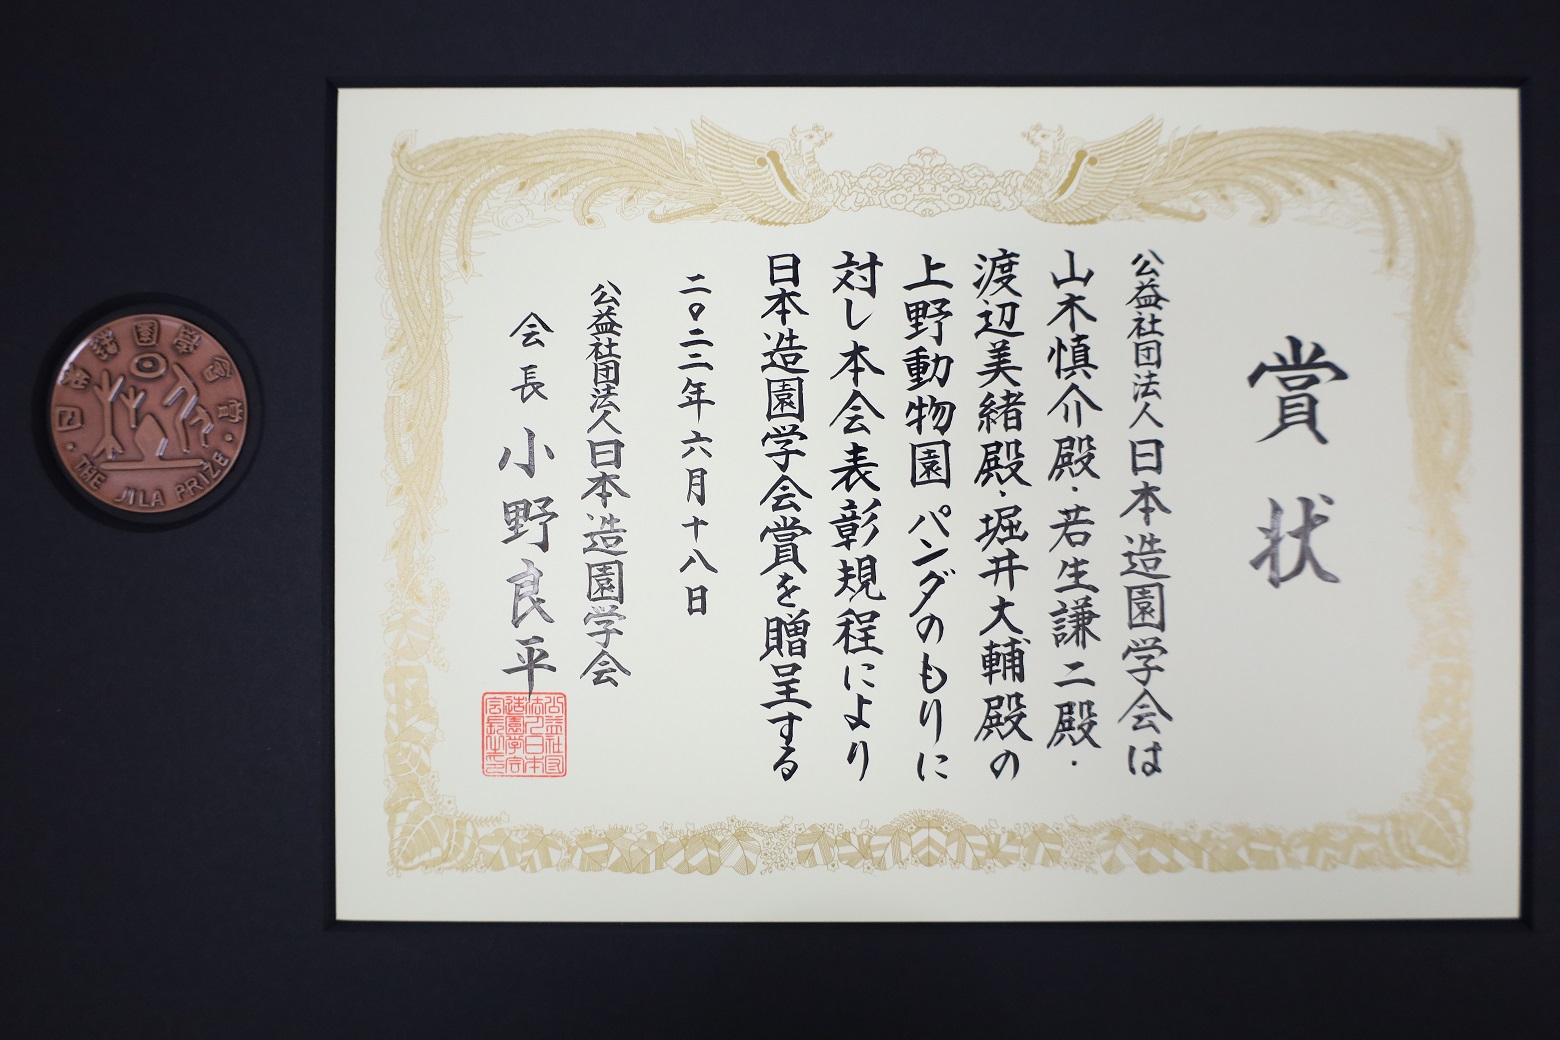 賞状
公益社団法人日本造園学会は
山木慎介殿・若生謙二殿・
渡辺美緒殿・堀井大輔殿の
上野動物園 パンダのもりに
対し本会表彰規程により
日本造園学会賞を贈呈する
二〇二二年六月十八日
公益社団法人日本造園学会
会長 小野良平
公益社団
法人日本
造園学会
会長之印
日本造園学会賞
THE JILA PRIZE